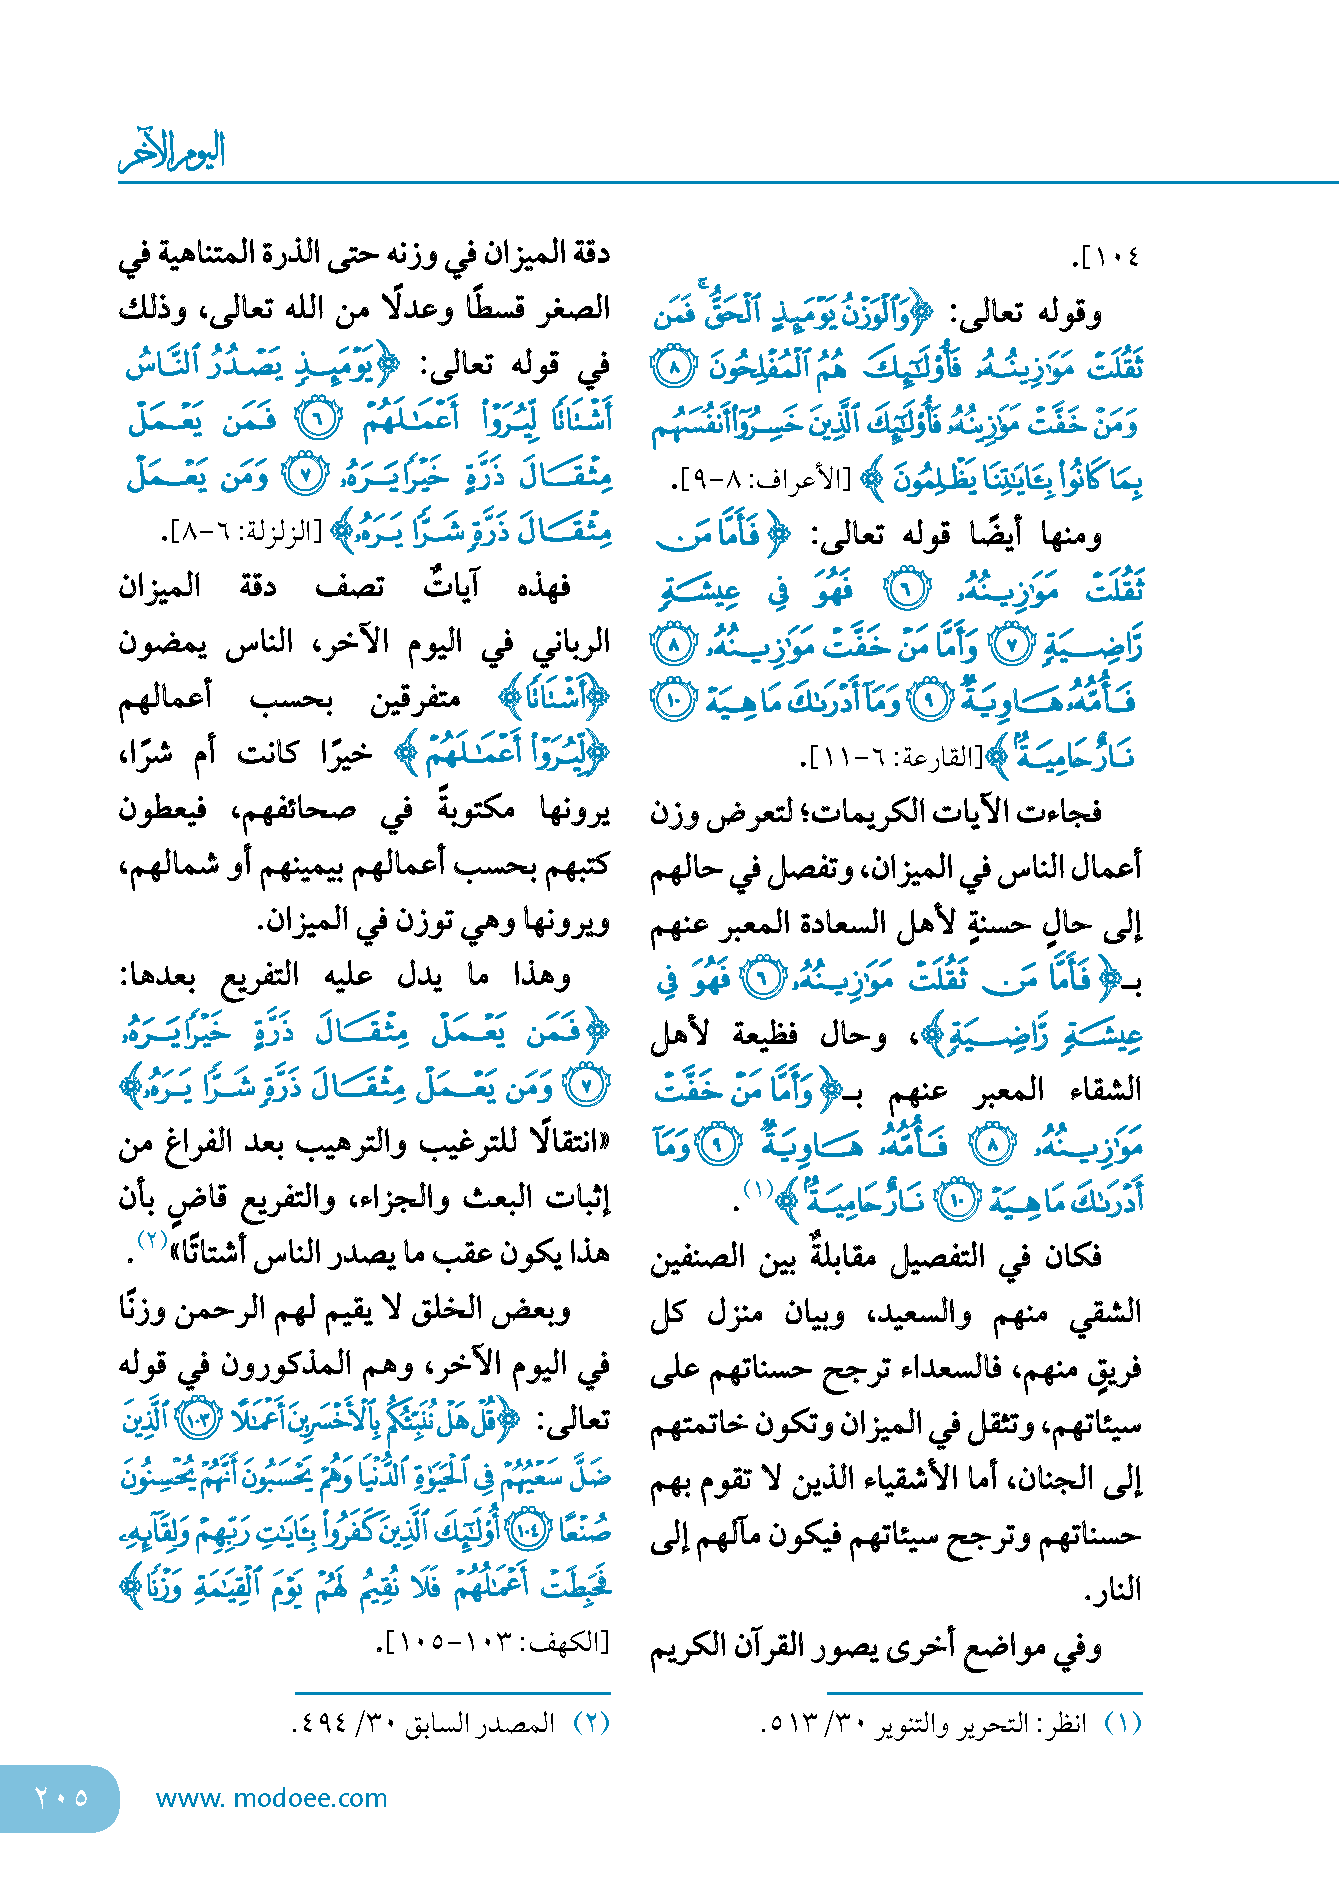 اليوم الآخر
١٠٤].
وقوله تعالى: ﴿وَٱلۡوَزۡنُ يَوۡمَئِذٍ ٱلۡحَقُّۚ فَمَن
ثَقُلَتۡ مَوَٰزِينُهُۥ فَأُوْلَٰٓئِكَ هُمُ ٱلۡمُفۡلِحُونَ ٨
وَمَنۡ خَفَّتۡ مَوَٰزِينُهُۥ فَأُوْلَٰٓئِكَ ٱلَّذِينَ خَسِرُوٓاْ أَنفُسَهُم
بِمَا كَانُواْ بِـَٔايَٰتِنَا يَظۡلِمُونَ﴾ [الأعراف: ٨-٩].
ومنها أيضًا قوله تعالى: ﴿فَأَمَّا مَن
ثَقُلَتۡ مَوَٰزِينُهُۥ ٦ فَهُوَ فِي عِيشَةٖ
رَّاضِيَةٖ ٧ وَأَمَّا مَنۡ خَفَّتۡ مَوَٰزِينُهُۥ ٨
فَأُمُّهُۥ هَاوِيَةٞ ٩ وَمَآ أَدۡرَىٰكَ مَا هِيَهۡ ١٠
نَارٌ حَامِيَةُۢ﴾ [القارعة: ٦-١١].
فجاءت الآيات الكريمات؛ لتعرض وزن
أعمال الناس في الميزان، وتفصل في حالهم
إلى حالٍ حسنةٍ لأهل السعادة المعبر عنهم
بـ﴿فَأَمَّا مَن ثَقُلَتۡ مَوَٰزِينُهُۥ ٦ فَهُوَ فِي
عِيشَةٖ رَّاضِيَةٖ﴾، وحال فظيعة لأهل
الشقاء المعبر عنهم بـ﴿وَأَمَّا مَنۡ خَفَّتۡ
مَوَٰزِينُهُۥ ٨ فَأُمُّهُۥ هَاوِيَةٞ ٩ وَمَآ
أَدۡرَىٰكَ مَا هِيَهۡ ١٠ نَارٌ حَامِيَةُۢ﴾(١).
فكان في التفصيل مقابلةٌ بين الصنفين
الشقي منهم والسعيد، وبيان منزل كل
فريقٍ منهم، فالسعداء ترجح حسناتهم على
سيئاتهم، وتثقل في الميزان وتكون خاتمتهم
إلى الجنان، أما الأشقياء الذين لا تقوم بهم
حسناتهم وترجح سيئاتهم فيكون مآلهم إلى
النار.
وفي مواضع أخرى يصور القرآن الكريم
دقة الميزان في وزنه حتى الذرة المتناهية في
الصغر قسطًا وعدلًا من الله تعالى، وذلك
في قوله تعالى: ﴿يَوۡمَئِذٖ يَصۡدُرُ ٱلنَّاسُ
أَشۡتَاتٗا لِّيُرَوۡاْ أَعۡمَٰلَهُمۡ ٦ فَمَن يَعۡمَلۡ
مِثۡقَالَ ذَرَّةٍ خَيۡرٗا يَرَهُۥ ٧ وَمَن يَعۡمَلۡ
مِثۡقَالَ ذَرَّةٖ شَرّٗا يَرَهُۥ﴾ [الزلزلة: ٦-٨].
فهذه آياتٌ تصف دقة الميزان
الرباني في اليوم الآخر، الناس يمضون
﴿أَشۡتَاتٗا﴾ متفرقين بحسب أعمالهم
﴿لِّيُرَوۡاْ أَعۡمَٰلَهُمۡ﴾ خيرًا كانت أم شرًا،
يرونها مكتوبةً في صحائفهم، فيعطون
كتبهم بحسب أعمالهم بيمينهم أو شمالهم،
ويرونها وهي توزن في الميزان.
وهذا ما يدل عليه التفريع بعدها:
﴿فَمَن يَعۡمَلۡ مِثۡقَالَ ذَرَّةٍ خَيۡرٗا يَرَهُۥ
٧ وَمَن يَعۡمَلۡ مِثۡقَالَ ذَرَّةٖ شَرّٗا يَرَهُۥ﴾
«انتقالًا للترغيب والترهيب بعد الفراغ من
إثبات البعث والجزاء، والتفريع قاضٍ بأن
هذا يكون عقب ما يصدر الناس أشتاتًا»(٢).
وبعض الخلق لا يقيم لهم الرحمن وزنًا
في اليوم الآخر، وهم المذكورون في قوله
تعالى: ﴿قُلۡ هَلۡ نُنَبِّئُكُم بِٱلۡأَخۡسَرِينَ أَعۡمَٰلًا ١٠٣ ٱلَّذِينَ
ضَلَّ سَعۡيُهُمۡ فِي ٱلۡحَيَوٰةِ ٱلدُّنۡيَا وَهُمۡ يَحۡسَبُونَ أَنَّهُمۡ يُحۡسِنُونَ
صُنۡعًا ١٠٤ أُوْلَٰٓئِكَ ٱلَّذِينَ كَفَرُواْ بِـَٔايَٰتِ رَبِّهِمۡ وَلِقَآئِهِۦ
فَحَبِطَتۡ أَعۡمَٰلُهُمۡ فَلَا نُقِيمُ لَهُمۡ يَوۡمَ ٱلۡقِيَٰمَةِ وَزۡنٗا﴾
[الكهف: ١٠٣-١٠٥].
(١) انظر: التحرير والتنوير ٣٠/ ٥١٣.
(٢) المصدر السابق ٣٠/ ٤٩٤.
٢٠٥
www. modoee.com